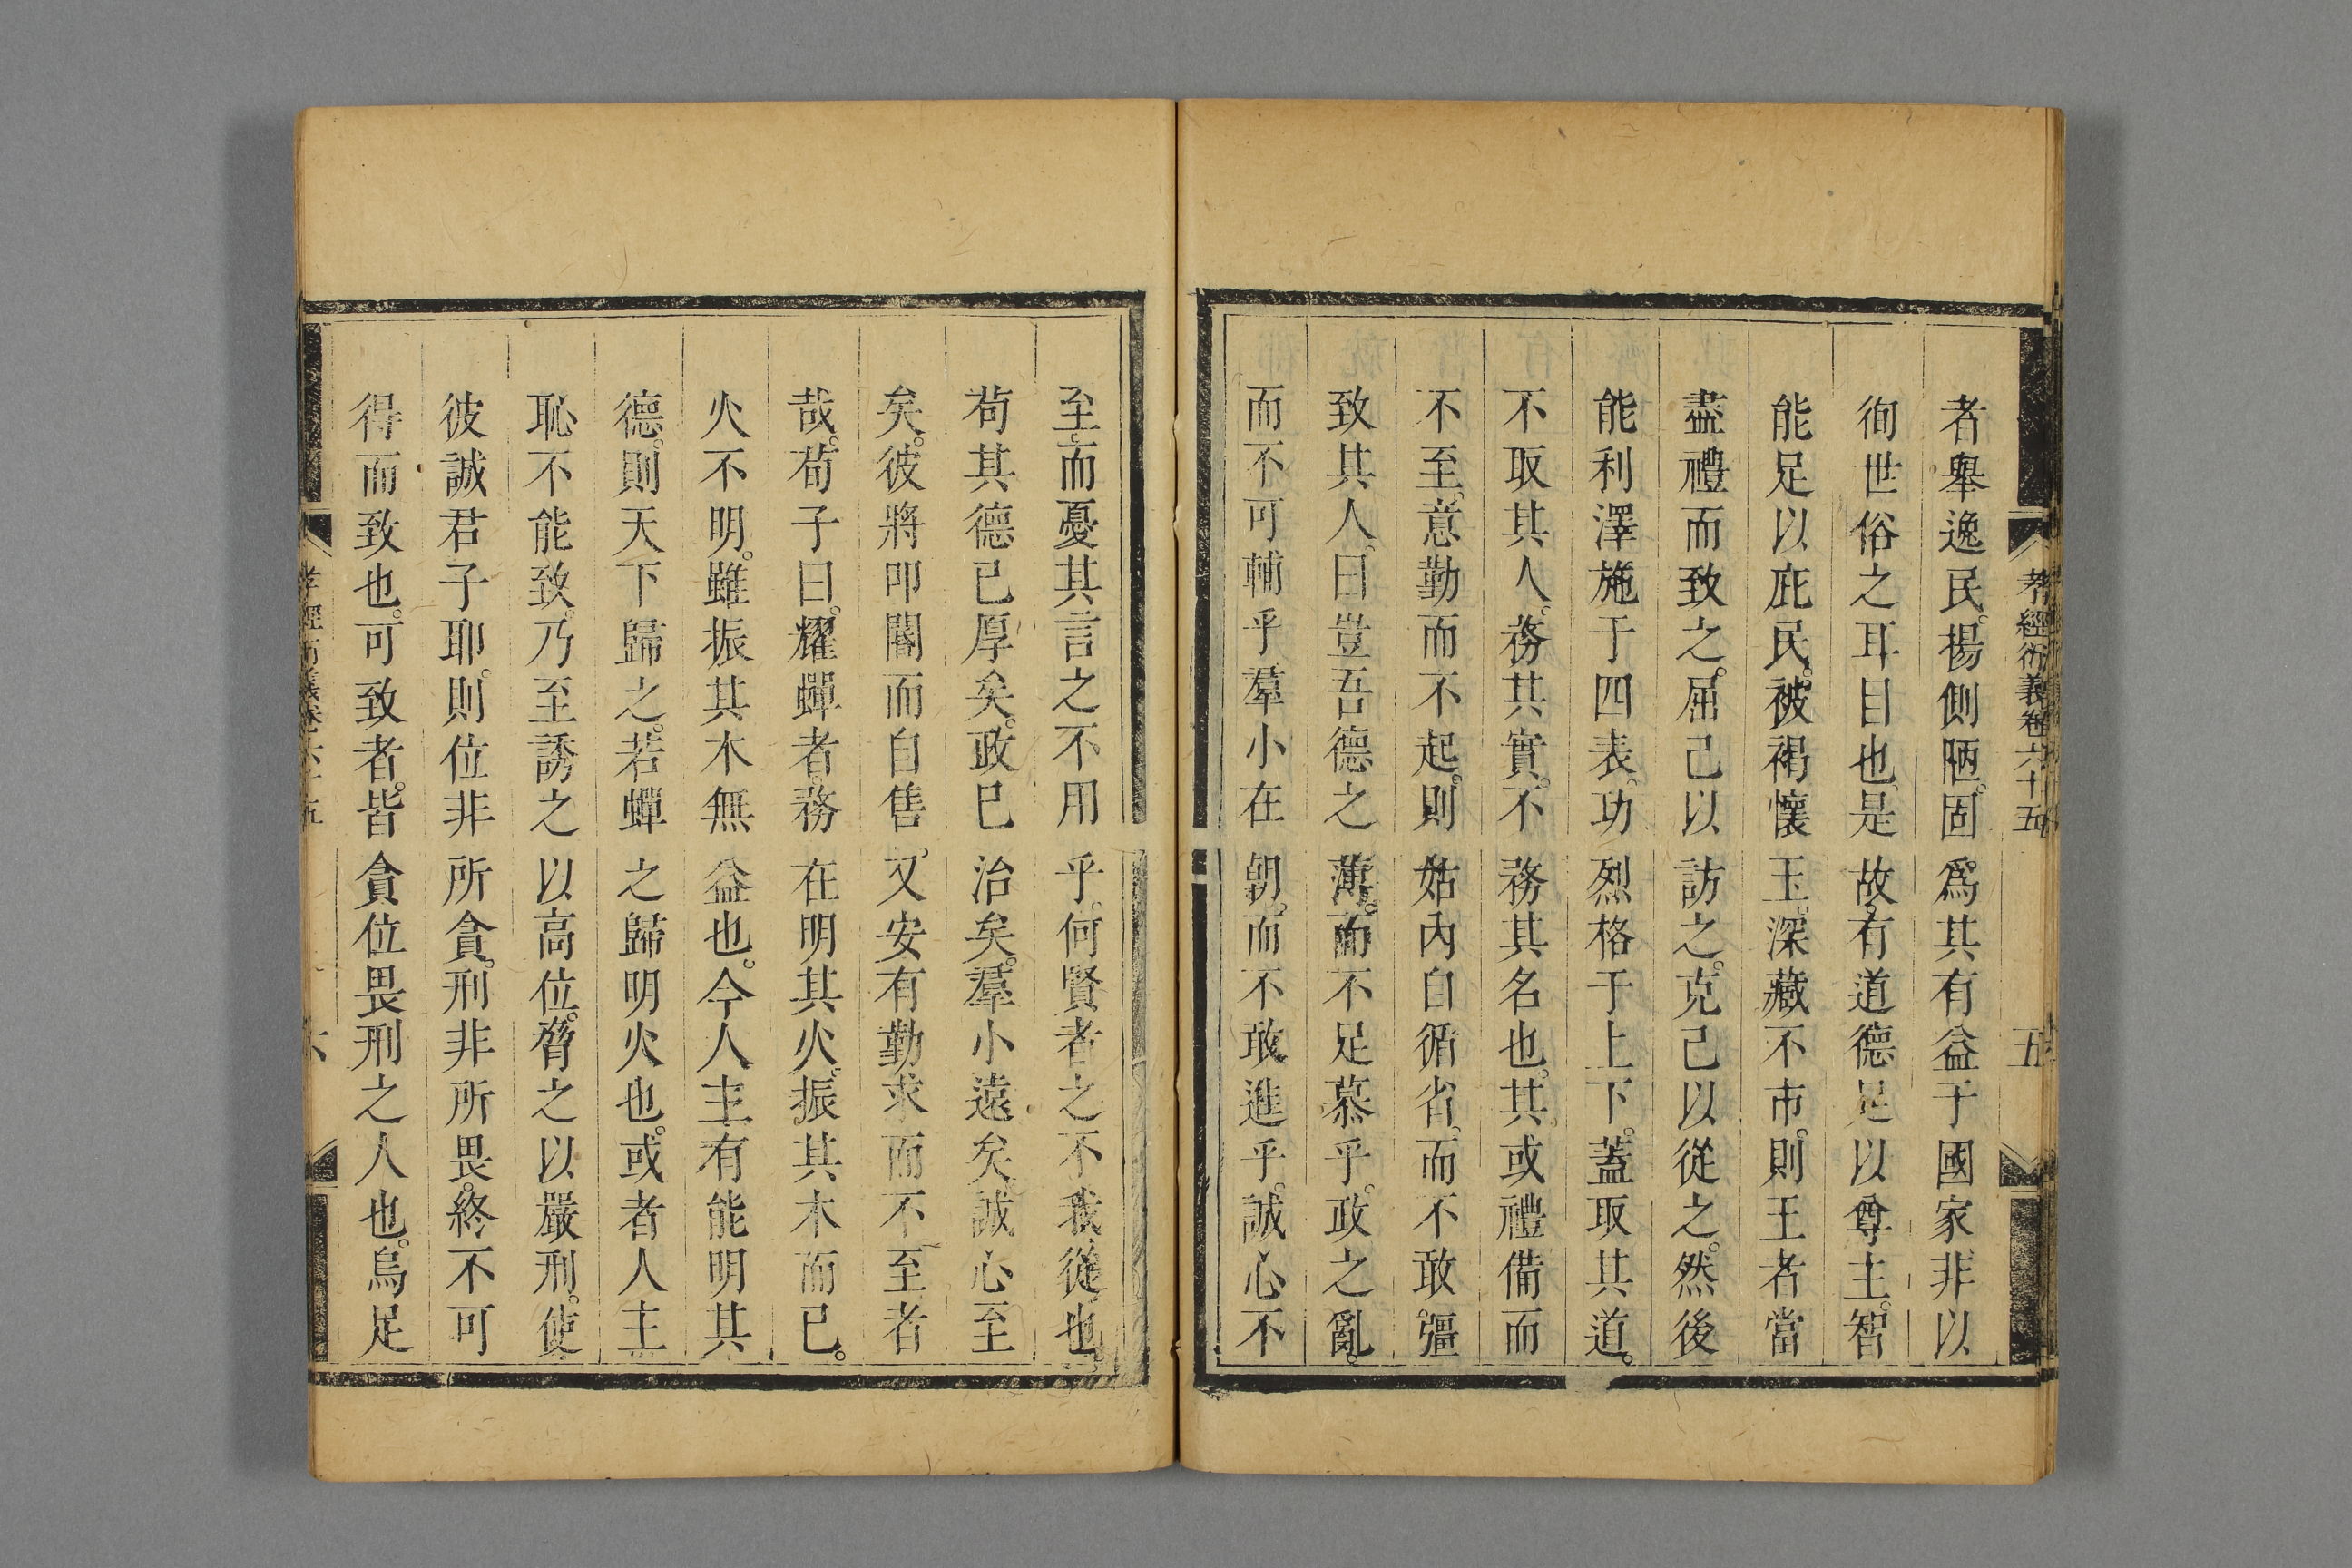 孝經衍義卷六十五
五
者舉逸民。揚側陋。固爲其有益于國家非以
徇世俗之耳目也。是故。有道德足以尊主。智
能足以庇民。被褐懷玉。深藏不市。則王者當
盡禮而致之。屈己以訪之。克己以從之。然後
能利澤施于四表。功烈格于上下。蓋取其道。
不取其人。務其實。不務其名也。其。或禮備而
不至。意勤而不起。則姑內自循省。而不敢。彊
致其人。曰豈吾德之薄。而不足慕乎。政之亂。
而不可輔乎。羣小在朝。而不敢進乎。誠心不
至。而憂其言之不用乎。何賢者之不我從也
苟其德已厚矣。政已治矣。羣小遠矣。誠心至
矣。彼將叩閽而自售。又安有勤求而不至者
哉。荀子曰。耀蟬者。務在明其火。振其木而已。
火不明。雖振其木無益也。今人主有能明其
德。則天下歸之。若蟬之歸明火也。或者人主
恥不能致。乃至誘之以高位。脅之以嚴刑。使
彼誠君子耶。則位非所貪。刑非所畏。終不可
得而致也。可致者。皆貪位畏刑之人也。烏足
孝經衍義卷六十五
六